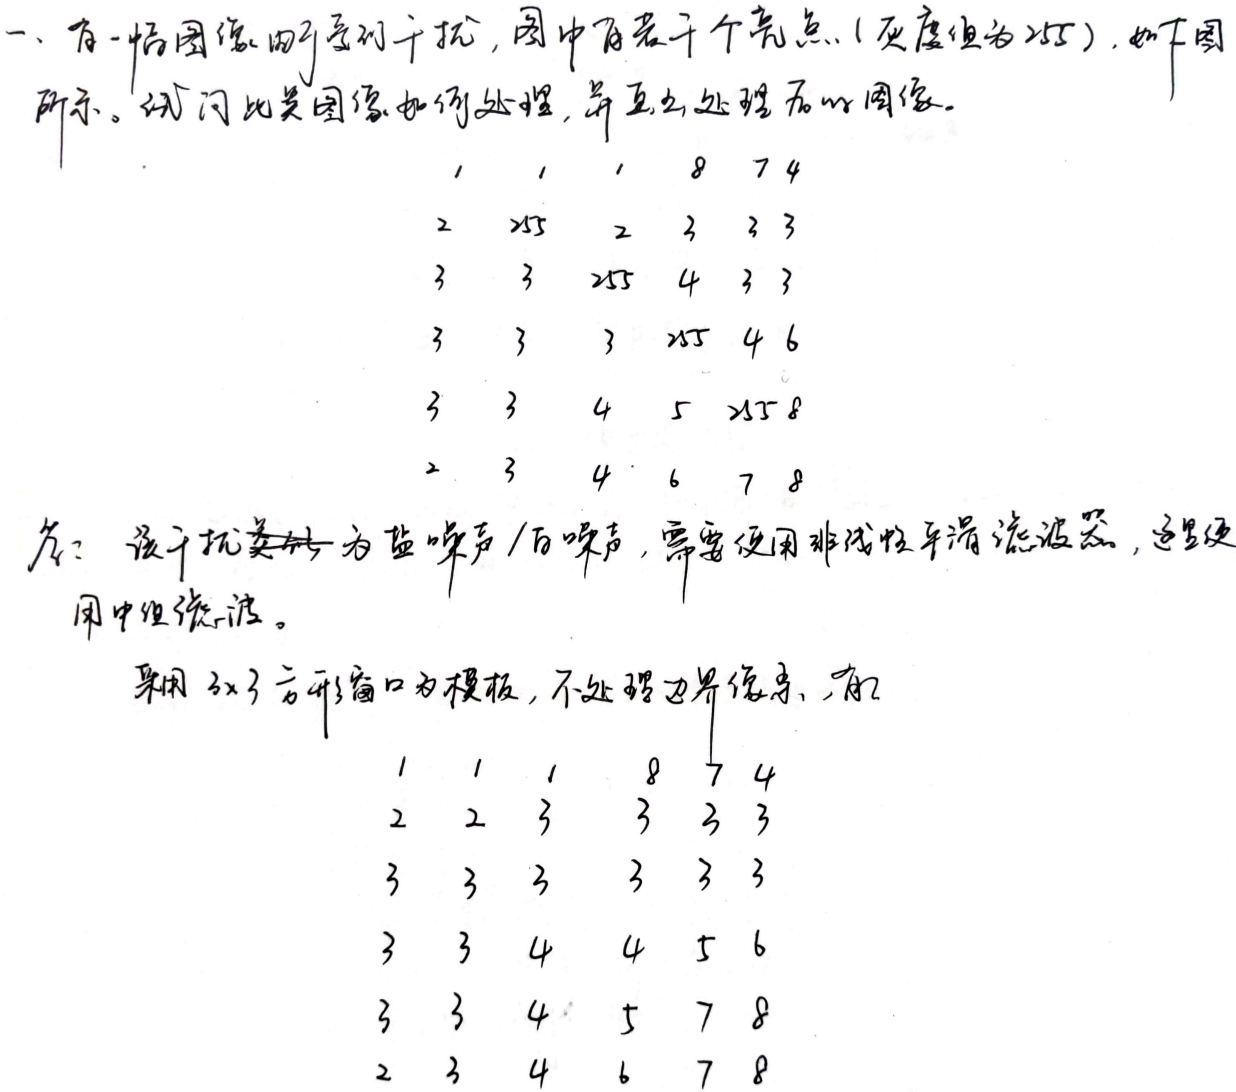 一、有一幅图像由于受到干扰,图中有若干个亮点(灰度值为255),如下图
所示。试问此类图像如何处理,并画出处理后的图像。
1 1 1 8 7 4
2 255 2 3 3 3
3 3 255 4 3 3
3 3 3 255 4 6
3 3 4 5 255 8
2 3 4 6 7 8
答: 该干扰为盐噪声/白噪声,需要使用非线性平滑滤波器,这里使
用中值滤波。
采用3x3方形窗口为模板,不处理边界像素,有:
1 1 1 8 7 4
2 2 3 3 3 3
3 3 3 3 3 3
3 3 4 4 5 6
3 3 4 5 7 8
2 3 4 6 7 8